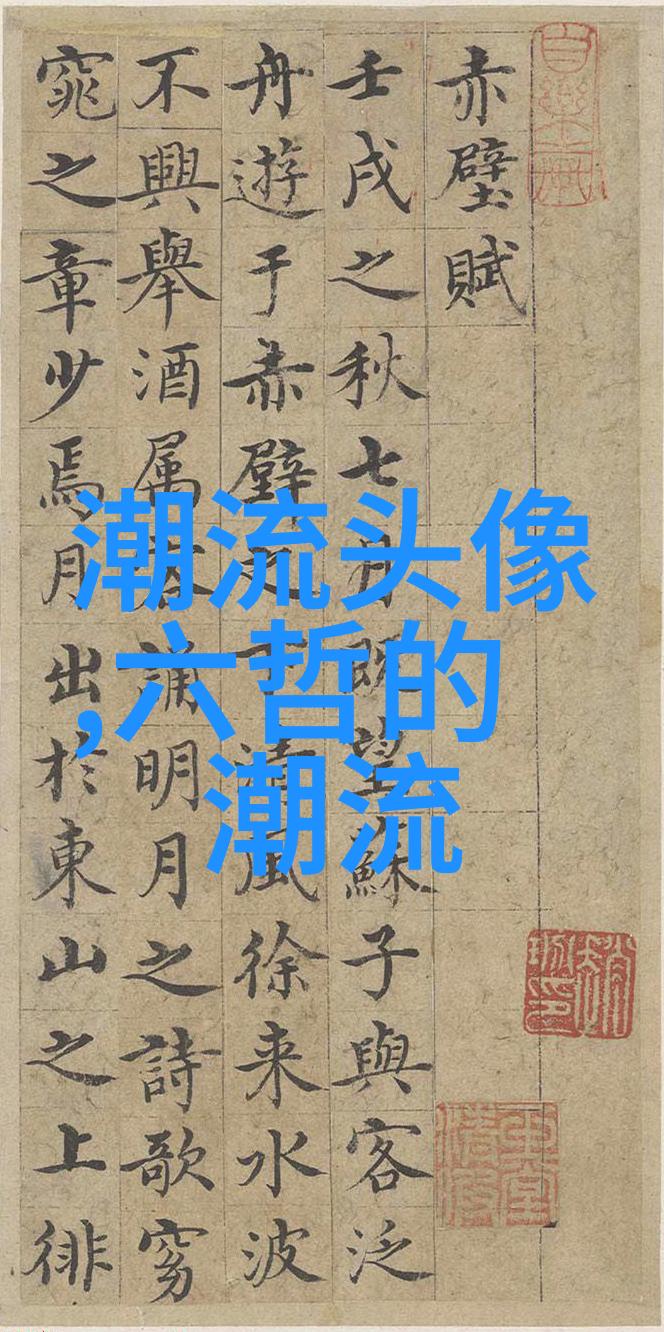 赤壁賦
壬戌之秋七月既望蘇子與客泛
舟遊于赤壁之下清風徐来水波
不興舉酒属客誦明月之詩歌窈
窕之章少焉月出於東山之上徘
潮流头像
,六哲的
潮流